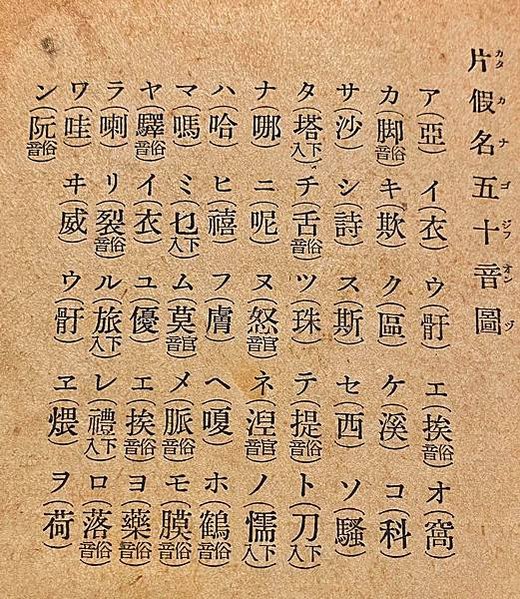 片假名五十音圖
カタカナゴジフオンヅ
ア(亞) イ(衣) ウ(骬) エ(挨俗音) オ(窩)
カ(脚俗音) キ(欺) ク(區) ケ(溪) コ(科)
サ(沙) シ(詩) ス(斯) セ(西) ソ(騷)
タ(塔下入) チ(舌俗音) ツ(珠) テ(提俗音) ト(刀下入)
ナ(哪) ニ(呢) ヌ(怒官音) ネ(涅官音) ノ(懦下入)
ハ(哈) ヒ(禧) フ(膚) ヘ(嗄) ホ(鶴俗音)
マ(嗎) ミ(乜下入) ム(莫官音) メ(脈俗音) モ(膜俗音)
ヤ(驛俗音) イ(衣) ユ(優) エ(挨俗音) ヨ(藥俗音)
ラ(喇) リ(裂俗音) ル(旅下入) レ(禮下入) ロ(落俗音)
ワ(哇) ヰ(威) ウ(骬) ヱ(煨) ヲ(荷)
ン(阮俗音)